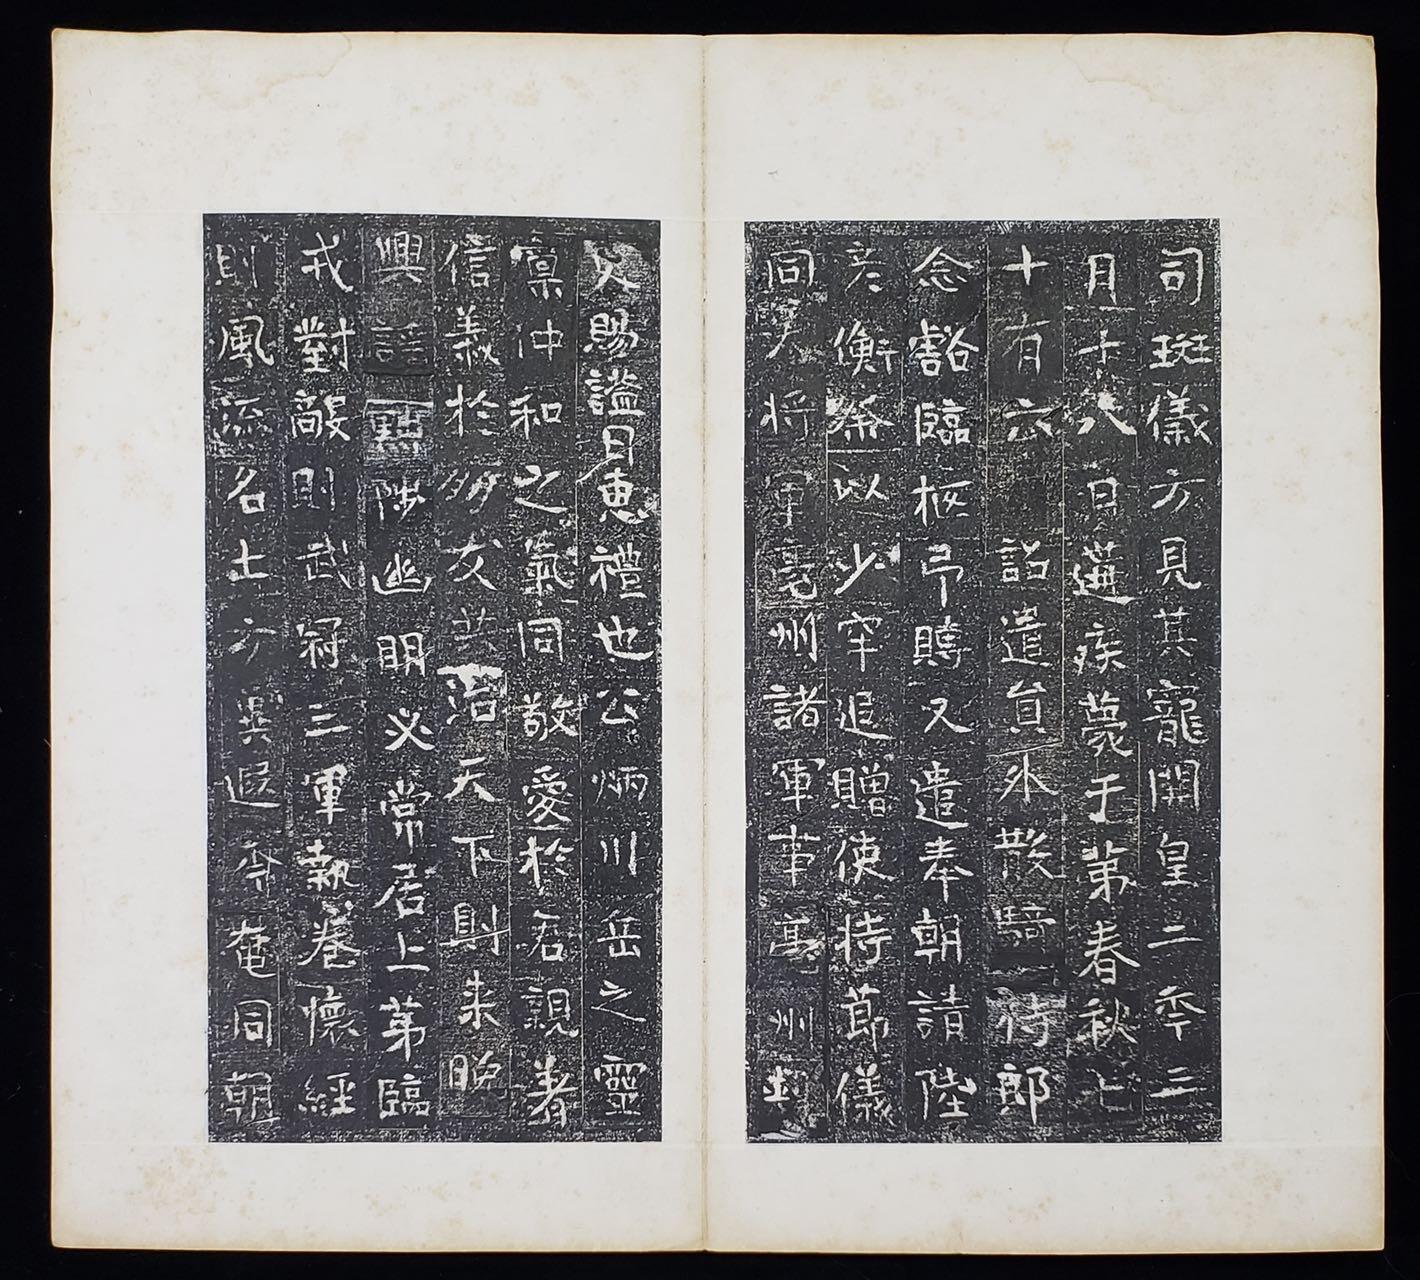 司班儀方見其寵開皇二年三
月十八日遘疾薨于第春秋七
十有六詔遣員外散騎侍郎
念豁臨柩弔賻又遣奉朝請陸
彥衡祭以少牢追贈使持節儀
同大將軍亳州諸軍事亳州刺
史賜謚曰惠禮也公炳川岳之靈
稟沖和之氣同敬愛於君親著
信義於朋友共治天下則未晚
興謠黜陟幽明必常居上第臨
戎對敵則武冠三軍執卷懷經
則風流名士方異遐年奄同朝